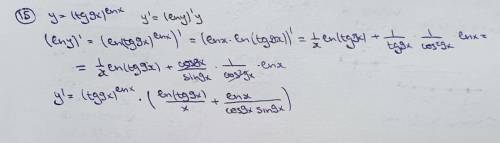 15 y = (tg9x)^lnx y' = (lny)'y
(lny)' = (ln(tg9x)^lnx)' = (lnx · ln(tg9x))' = 1/x ln(tg9x) + 1/tg9x · 1/cos²9x lnx =
= 1/x ln(tg9x) + cos9x/sin9x · 1/cos²9x · lnx
y' = (tg9x)^lnx · (ln(tg9x)/x + lnx/cos9x sin9x)